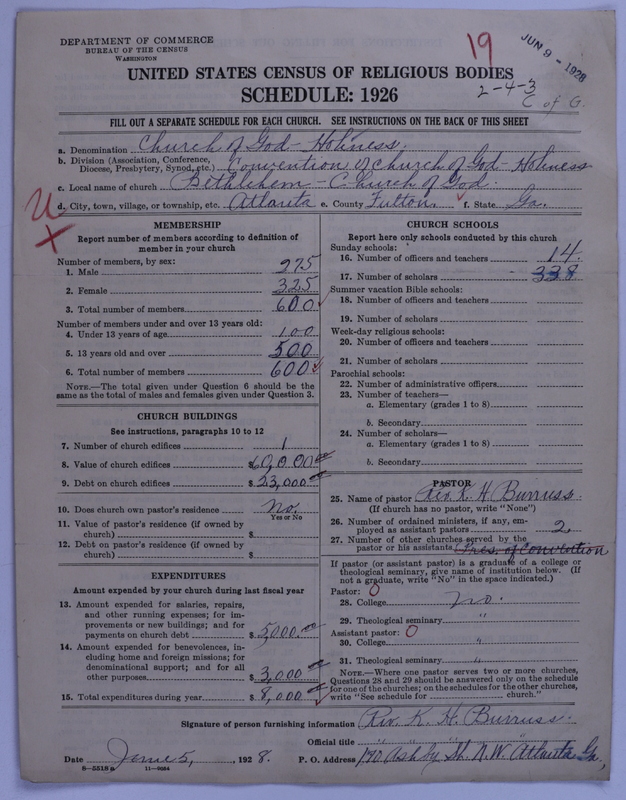 DEPARTMENT OF COMMERCE
BUREAU OF THE CENSUS
WASHINGTON
19
JUN 9 - 1928
2-4-3
C. of G.
UNITED STATES CENSUS OF RELIGIOUS BODIES
SCHEDULE: 1926
FILL OUT A SEPARATE SCHEDULE FOR EACH CHURCH. SEE INSTRUCTIONS ON THE BACK OF THIS SHEET
a. Denomination Church of God - Holiness.
b. Division (Association, Conference,
Diocese, Presbytery, Synod, etc.) Convention of Church of God - Holiness
c. Local name of church Bethlehem - Church of God.
d. City, town, village, or township, etc. Atlanta e. County Fulton. f. State Ga.
MEMBERSHIP
Report number of members according to definition of
member in your church
Number of members, by sex:
1. Male 275
2. Female 325
3. Total number of members 600
Number of members under and over 13 years old:
4. Under 13 years of age 100
5. 13 years old and over 500
6. Total number of members 600
NOTE.—The total given under Question 6 should be the
same as the total of males and females given under Question 3.
CHURCH BUILDINGS
See instructions, paragraphs 10 to 12
7. Number of church edifices 1
8. Value of church edifices $60,000
9. Debt on church edifices $23,000
10. Does church own pastor's residence No.
Yes or No
11. Value of pastor's residence (if owned by
church) $
12. Debt on pastor's residence (if owned by
church) $
EXPENDITURES
Amount expended by your church during last fiscal year
13. Amount expended for salaries, repairs,
and other running expenses; for im-
provements or new buildings; and for
payments on church debt $5,000.
14. Amount expended for benevolences, in-
cluding home and foreign missions; for
denominational support; and for all
other purposes $3,000
15. Total expenditures during year $8,000
CHURCH SCHOOLS
Report here only schools conducted by this church
Sunday schools:
16. Number of officers and teachers 14.
17. Number of scholars 338
Summer vacation Bible schools:
18. Number of officers and teachers
19. Number of scholars
Week-day religious schools:
20. Number of officers and teachers
21. Number of scholars
Parochial schools:
22. Number of administrative officers
23. Number of teachers—
a. Elementary (grades 1 to 8)
b. Secondary
24. Number of scholars—
a. Elementary (grades 1 to 8)
b. Secondary
PASTOR
25. Name of pastor Rev. K. H. Burruss.
(If church has no pastor, write "None")
26. Number of ordained ministers, if any, em-
ployed as assistant pastors 2
27. Number of other churches served by the
pastor or his assistants Pres. of Convention
If pastor (or assistant pastor) is a graduate of a college or
theological seminary, give name of institution below. (If
not a graduate, write "No" in the space indicated.)
Pastor: 0
28. College no.
29. Theological seminary "
Assistant pastor: 0
30. College "
31. Theological seminary "
NOTE.—Where one pastor serves two or more churches,
Questions 28 and 29 should be answered only on the schedule
for one of the churches; on the schedules for the other churches,
write "See schedule for church."
Signature of person furnishing information Rev. K. H. Burruss.
Official title " " " "
Date June 5, 1928. P. O. Address 190 Ashby St. N.W. Atlanta Ga,
8-5518a 11-8684